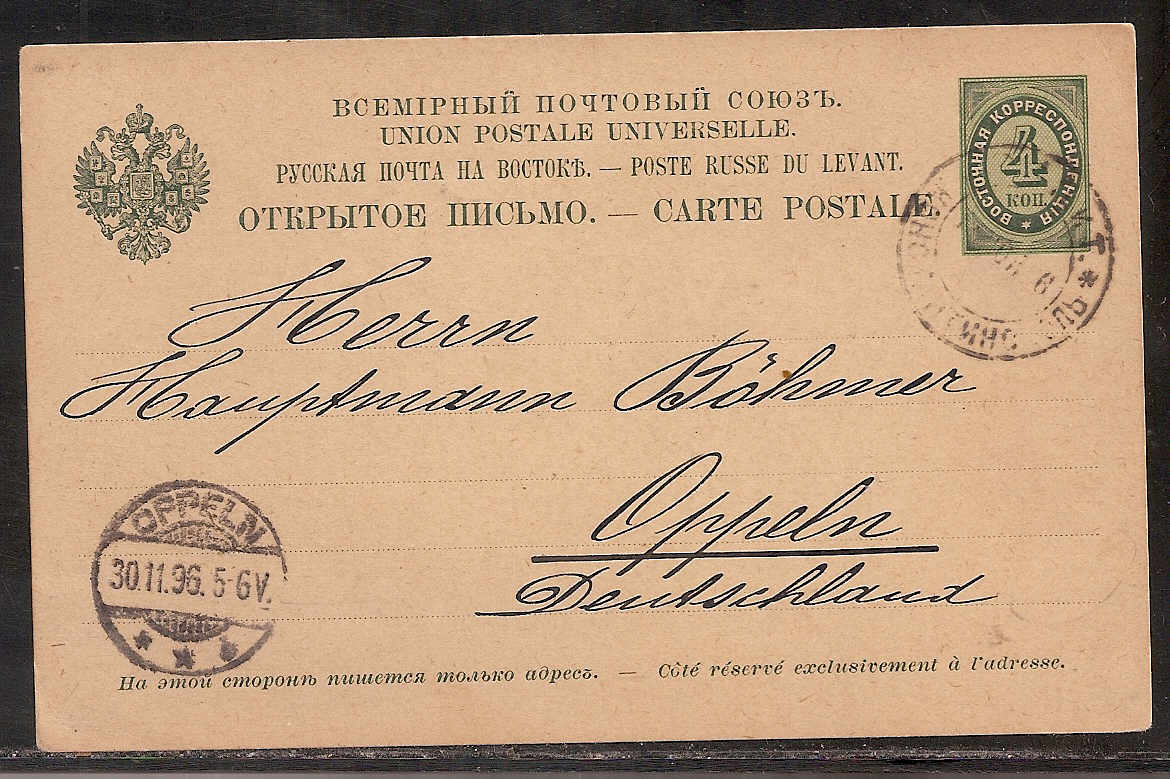 ВСЕМІРНЫЙ ПОЧТОВЫЙ СОЮЗЪ.
UNION POSTALE UNIVERSELLE.
РУССКАЯ ПОЧТА НА ВОСТОКѢ. — POSTE RUSSE DU LEVANT.
ОТКРЫТОЕ ПИСЬМО. — CARTE POSTALE.
ВОСТОЧНАЯ КОРРЕСПОНДЕНЦІЯ
4
КОП.
Herrn
Hauptmann Böhmer
Oppeln
Deutschland
OPPELN
30.11.96. 5-6V.
На этой сторонѣ пишется только адресъ. — Côté réservé exclusivement à l'adresse.